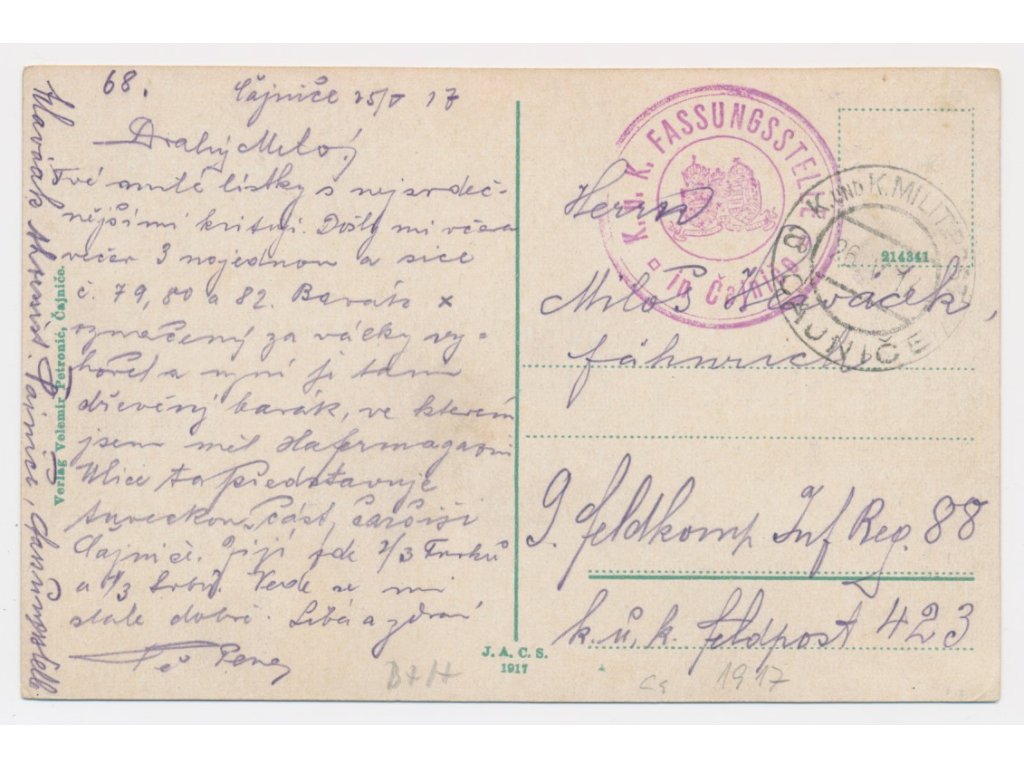 68.
Čajniče 25/V 17
Drahý Miloš!
Tvé milé lístky s nejsrdeč-
nějšími kritují. Došly mi včera
večer 3 najednou a sice
č. 79, 80 a 82. Barák x
označený za války vy-
hořel a nyní je tam
dřevěný barák, ve kterém
jsem měl Hafermagazin.
Ulice ta představuje
tureckou část, čaršiji
Čajniče. Žijí zde 2/3 Turků
a 1/3 Srbů. Vede se mi
stále dobře. Líbá a zdraví
Verlag Velemir Petronić, Čajniče.
J. A. C. S.
1917
K. U. K. FASSUNGSSTELLE
in Čajnice
K. UND K. MILIT
ČAJNIČE
214341
Herrn
Miloš Hlaváček,
fähnrich
9. Feldkomp Inf Reg. 88
k. u. k. Feldpost 423
B+H
ca 1917